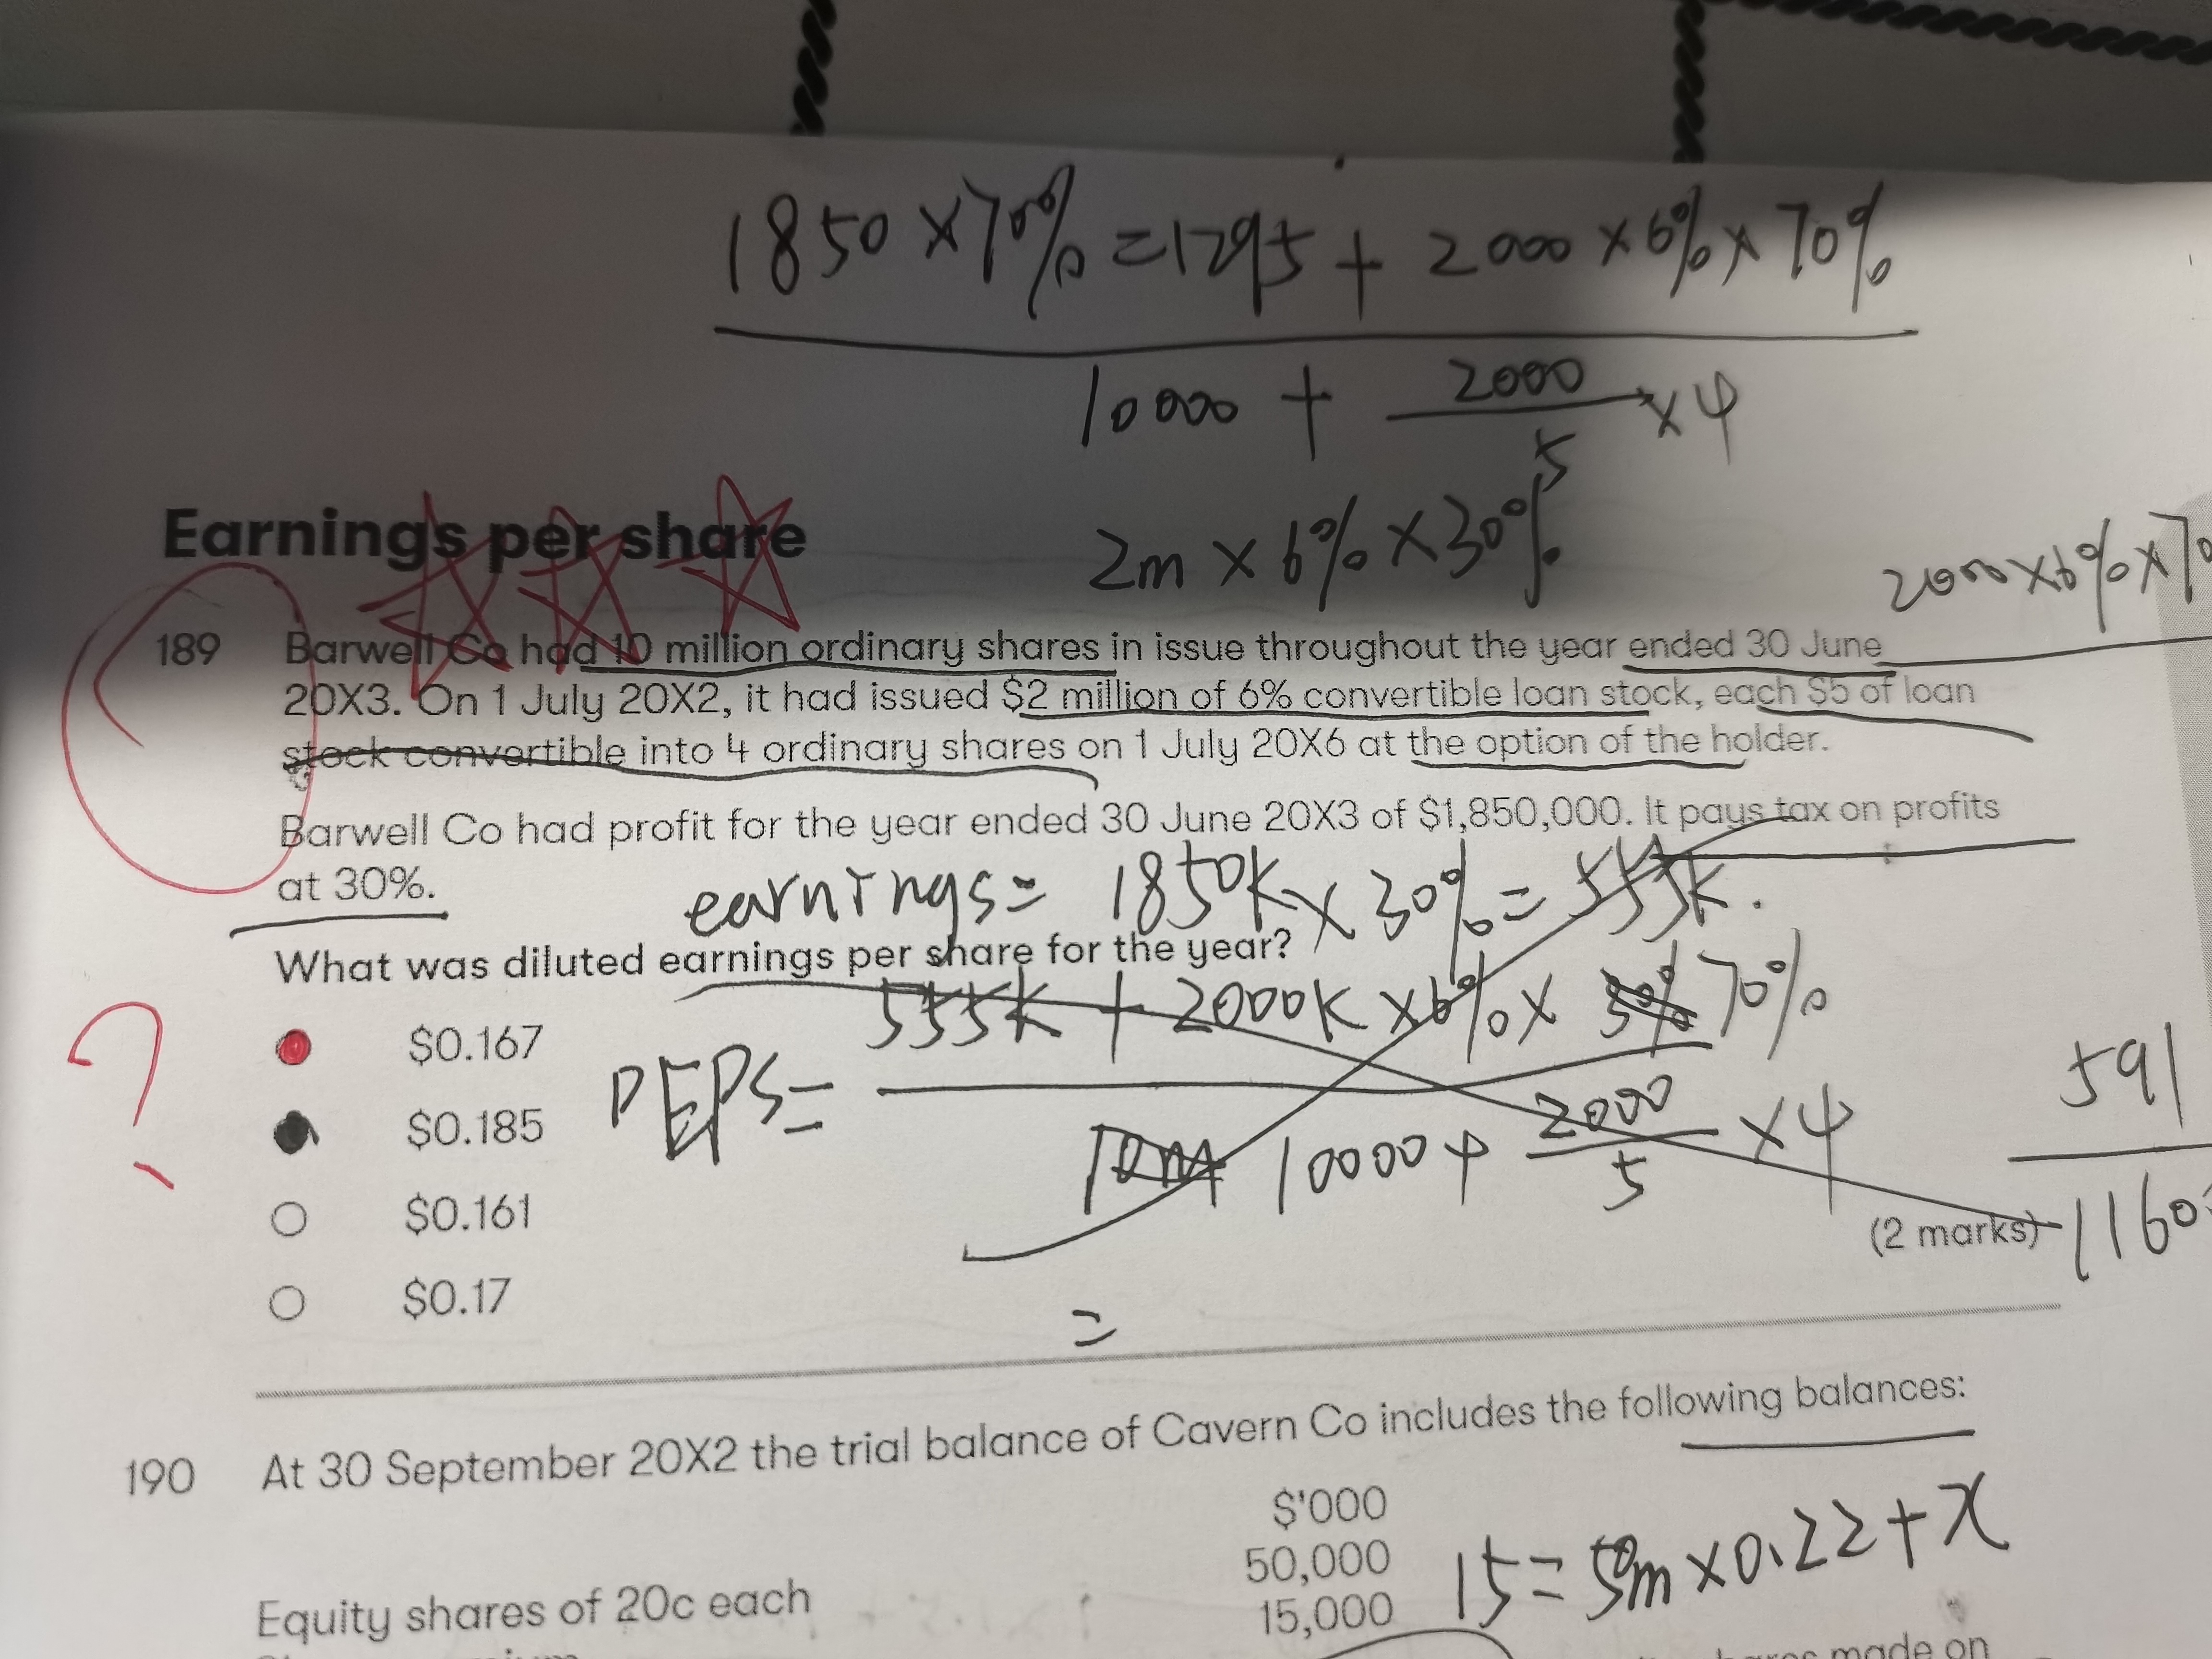 1850 × 70% = 1295 + 2000 × 6% × 70%
10000 + 2000/5 × 4
2m × 6% × 30%
Earnings per share
2000 × 6% × 70
189 Barwell Co had 10 million ordinary shares in issue throughout the year ended 30 June
20X3. On 1 July 20X2, it had issued $2 million of 6% convertible loan stock, each $5 of loan
stock convertible into 4 ordinary shares on 1 July 20X6 at the option of the holder.
Barwell Co had profit for the year ended 30 June 20X3 of $1,850,000. It pays tax on profits
at 30%.
earnings = 1850k × 30% = 555k.
What was diluted earnings per share for the year?
555k + 2000k × 6% × 30% 70%
?
$0.167
DEPS =
$0.185
10m 10000 + 2000/5 × 4
591
1160
$0.161
(2 marks)
$0.17
=
190 At 30 September 20X2 the trial balance of Cavern Co includes the following balances:
$'000
Equity shares of 20c each 50,000
15,000
15 = 50m × 0.22 + x
made on